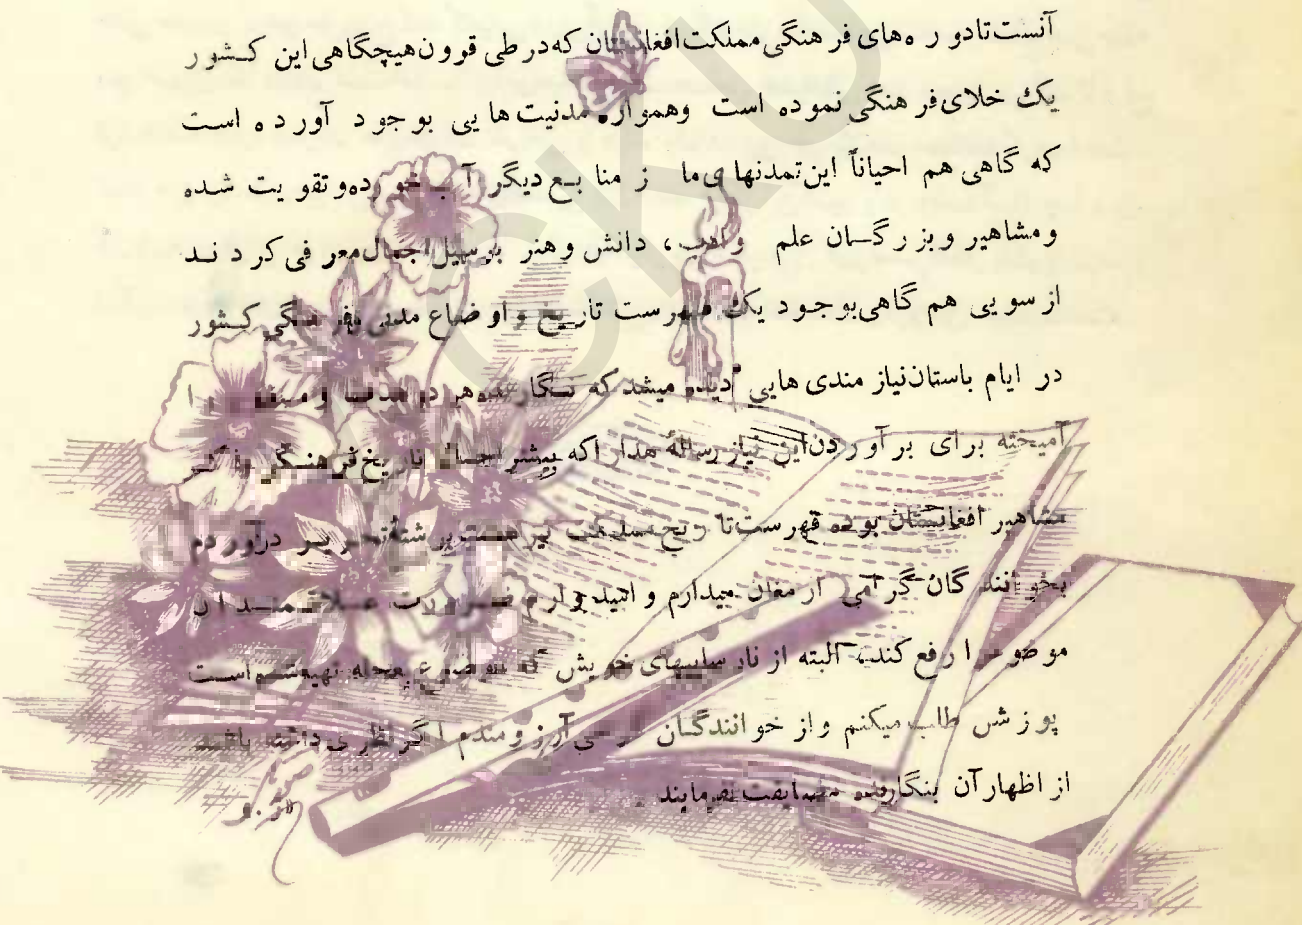 آنست تا دوره های فرهنگی مملکت افغانستان که در طی قرون هیچگاهی این کشور
یک خلای فرهنگی نموده است وهمواره مدنیت هایی بوجود آورده است
که گاهی هم احیاناً این تمدنهای ما ز منابع دیگر آب خورده و تقویت شده
ومشاهیر وبزرگان علم وادب، دانش وهنر برسبیل اجمال معرفی کردند
از سویی هم گاهی بوجود یک فهرست تاریخ و اوضاع مدنی وفرهنگی کشور
در ایام باستان نیازمندی هایی دیده میشد که نگارنده هر دو هدف و
آمیخته برای برآوردن این نیاز رسالهٔ هذا را که بیشتر تاریخ فرهنگی
مشاهیر افغانستان بوده فهرست تا ریخ نیز هست برشتهٔ تحریر درآوردم
بخوانندگان گرامی ارمغان میدارم و امیدوارم ضرورت علاقمندان
موضوع را رفع کند، البته از نارساییهای خویش که است
پوزش طلب میکنم و از خوانندگان گرامی آرزومندم اگر نظری داشته باشند
از اظهار آن بنگارنده مضایقت نفرمایند
CKU